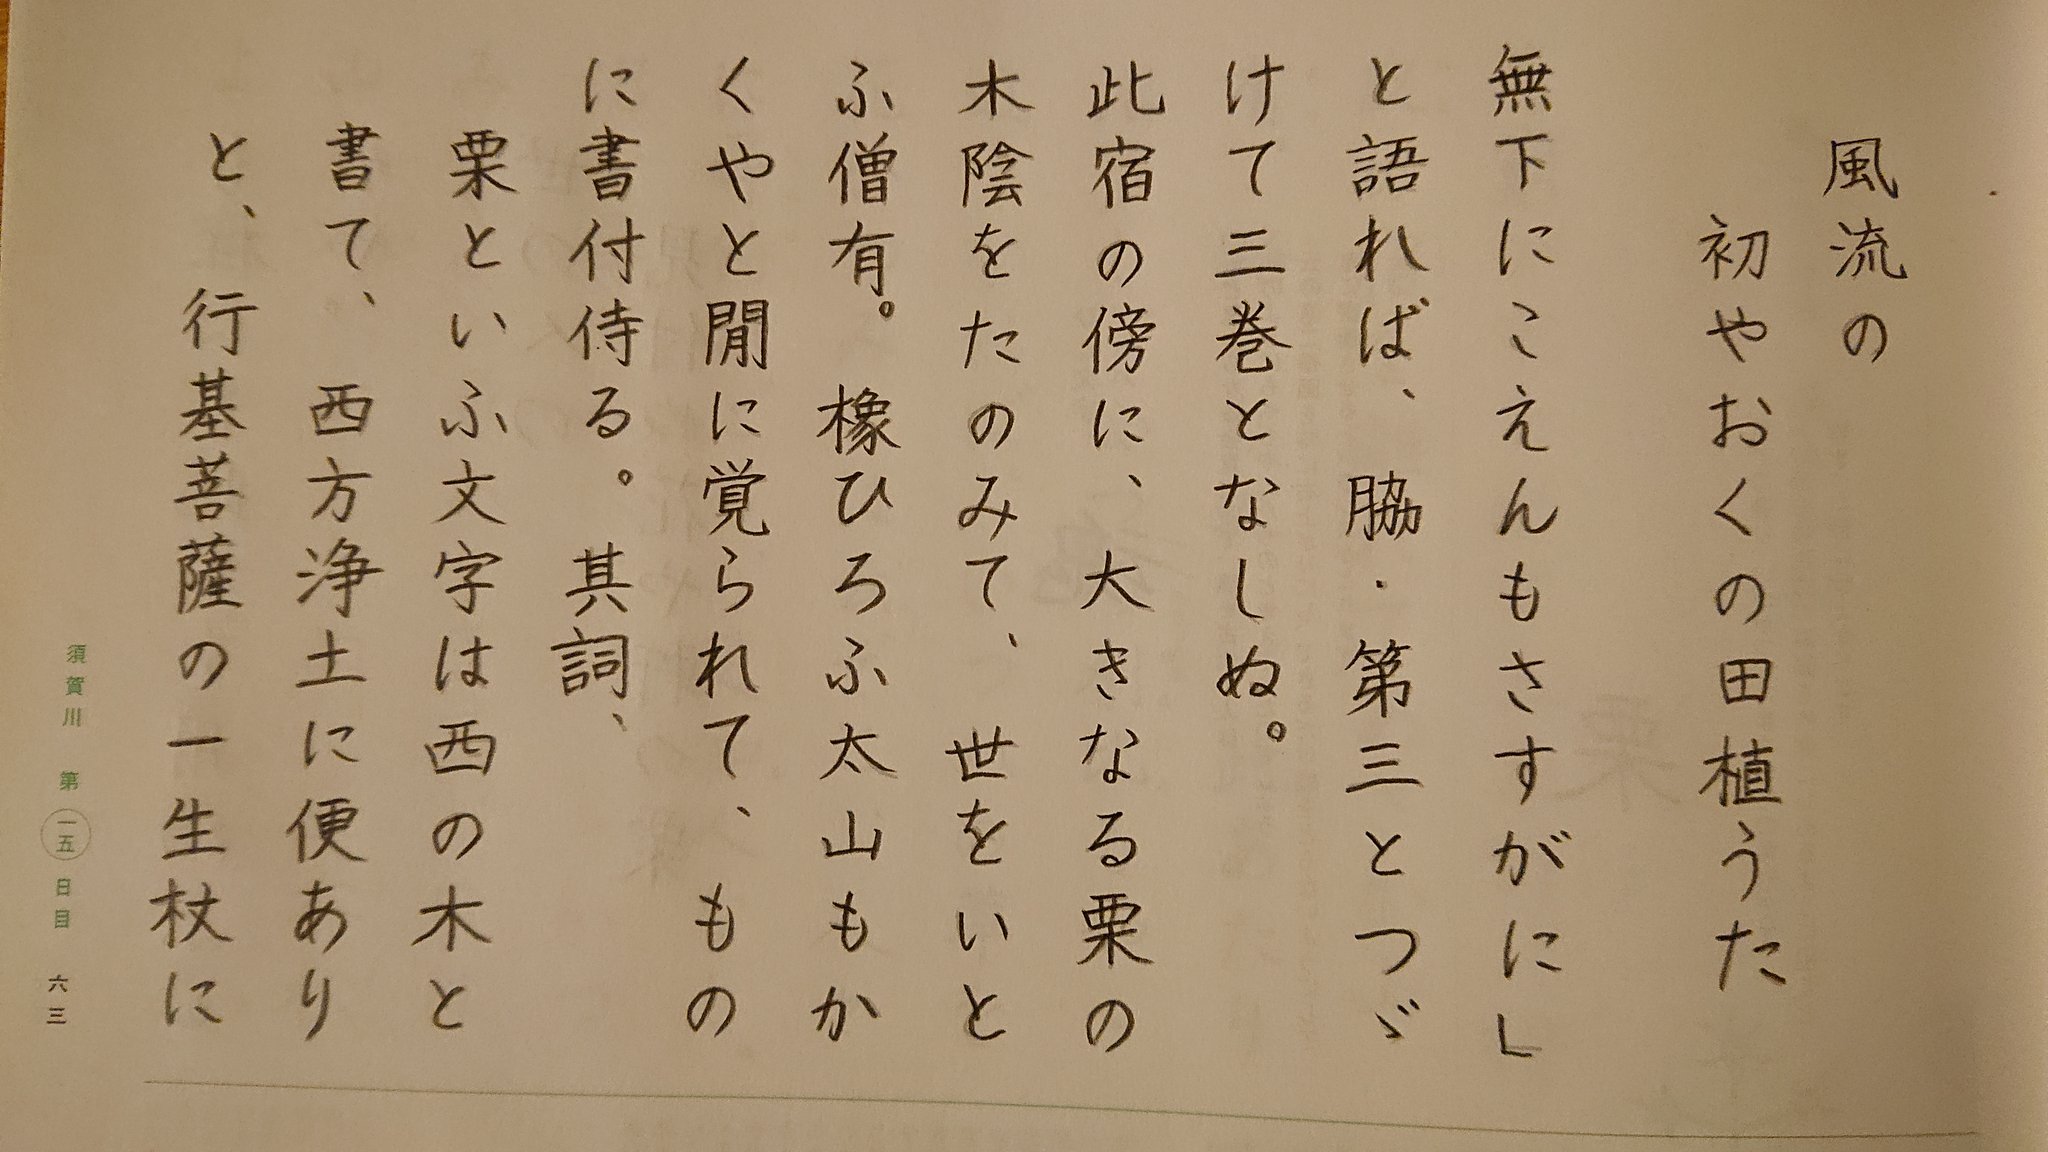 風流の
初やおくの田植うた
無下にこえんもさすがに」
と語れば、脇・第三とつゞ
けて三巻となしぬ。
此宿の傍に、大きなる栗の
木陰をたのみて、世をいと
ふ僧有。橡ひろふ太山もか
くやと閒に覚られて、もの
に書付侍る。其詞、
栗といふ文字は西の木と
書て、西方浄土に便あり
と、行基菩薩の一生杖に
須賀川 第一五日目 六三